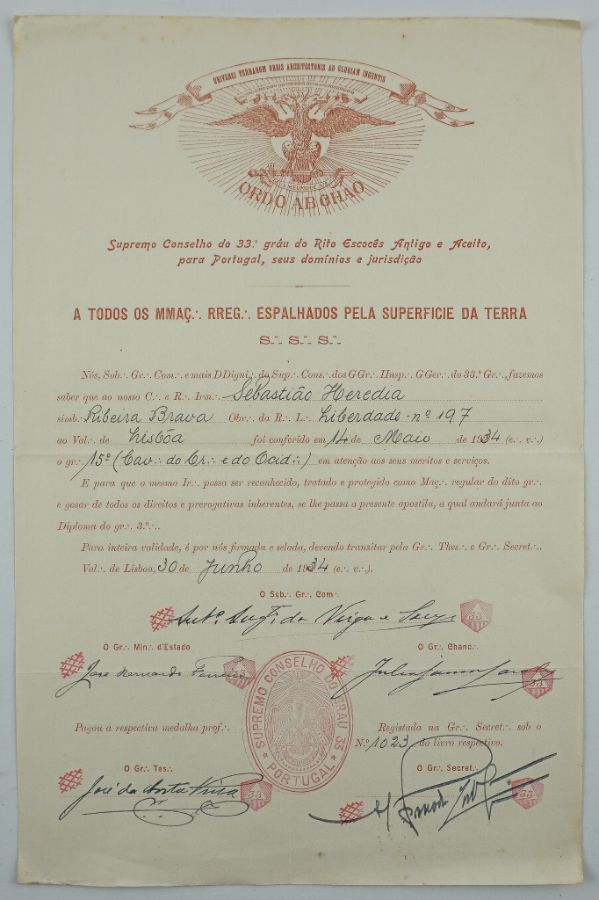 UNIVERSI TERRARUM ORBIS ARCHITECTONIS AD GLORIAM INGENTIS
ORDO AB CHAO
Supremo Conselho do 33.º gráu do Rito Escocês Antigo e Aceito,
para Portugal, seus domínios e jurisdição
A TODOS OS MMAÇ.·. RREG.·. ESPALHADOS PELA SUPERFICIE DA TERRA
S.·. S.·. S.·.
Nós, Sob.·. Gr.·. Com.·. e mais DDigni.·. do Sup.·. Cons.·. dos GGr.·. IInsp.·. GGer.·. do 33.º Gr.·., fazemos
saber que ao nosso C.·. e R.·. Irm.·. Sebastião Heredia
simb.·. Ribeira Brava Obr.·. da R.·. L.·. Liberdade nº 197
ao Val.·. de Lisbôa foi conferido em 14 de Maio de 1934 (e.·. v.·.)
o gr.·. 15º (Cav.·. do Or.·. e do Ocid.·.) em atenção aos seus meritos e serviços.
E para que o mesmo Ir.·. possa ser reconhecido, tratado e protegido como Maç.·. regular do dito gr.·.
e gosar de todos os direitos e prerogativas inherentes, se lhe passa a presente apostila, a qual andará junta ao
Diploma do gr.·. 3.º.·.
Para inteira validade, é por nós firmada e selada, devendo transitar pela Gr.·. Thes.·. e Gr.·. Secret.·.
Val.·. de Lisboa, 30 de Junho de 1934 (e.·. v.·.).
O Sob.·. Gr.·. Com.·.
Antº. Augº. da Veiga e
33
O Gr.·. Min.·. d'Estado
O Gr.·. Chanc.·.
José Bernardo Ferreira
33
33
SUPREMO CONSELHO DO GRÁU 33
PORTUGAL
Pagou a respectiva medalha prof.·.
Registada na Gr.·. Secret.·. sob o
N.º 1023 do livro respectivo.
O Gr.·. Tes.·.
O Gr.·. Secret.·.
José da Costa
33
33